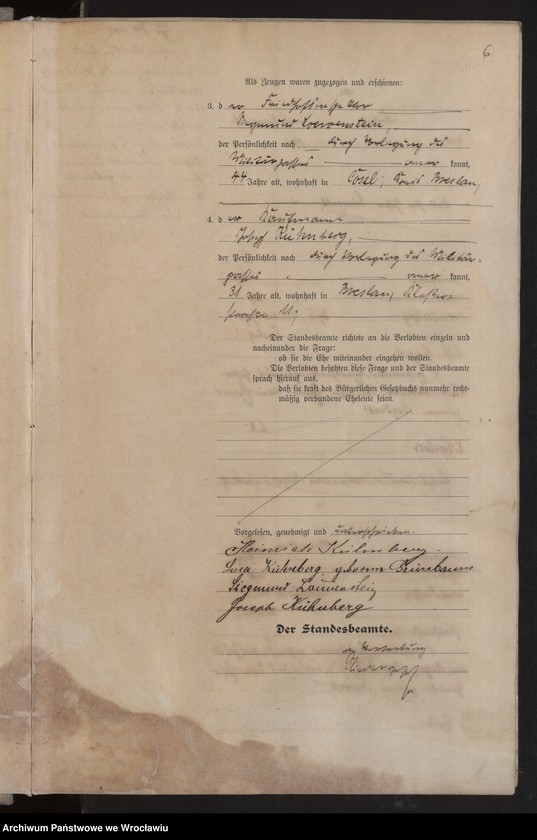 6
Als Zeugen waren zugezogen und erschienen:
3. d er Friedhofinspektor
Siegmund Loewenstein,
der Persönlichkeit nach durch Vorlegung des
Militärpasses kannt,
44 Jahre alt, wohnhaft in Cosel, Kreis Breslau,
4. d er Kaufmann
Joseph Kuhnberg,
der Persönlichkeit nach durch Vorlegung des Militär-
passes kannt,
31 Jahre alt, wohnhaft in Breslau, Kloster-
straße
Der Standesbeamte richtete an die Verlobten einzeln und
nacheinander die Frage:
ob sie die Ehe miteinander eingehen wollen.
Die Verlobten bejahten diese Frage und der Standesbeamte
sprach hierauf aus,
daß sie kraft des Bürgerlichen Gesetzbuchs nunmehr recht-
mäßig verbundene Eheleute seien.
Vorgelesen, genehmigt und unterschrieben.
Heinrich Kuhnberg.
Kuhnberg geborene
Siegmund Loewenstein
Joseph Kuhnberg
Der Standesbeamte.
In Vertretung
Archiwum Państwowe we Wrocławiu